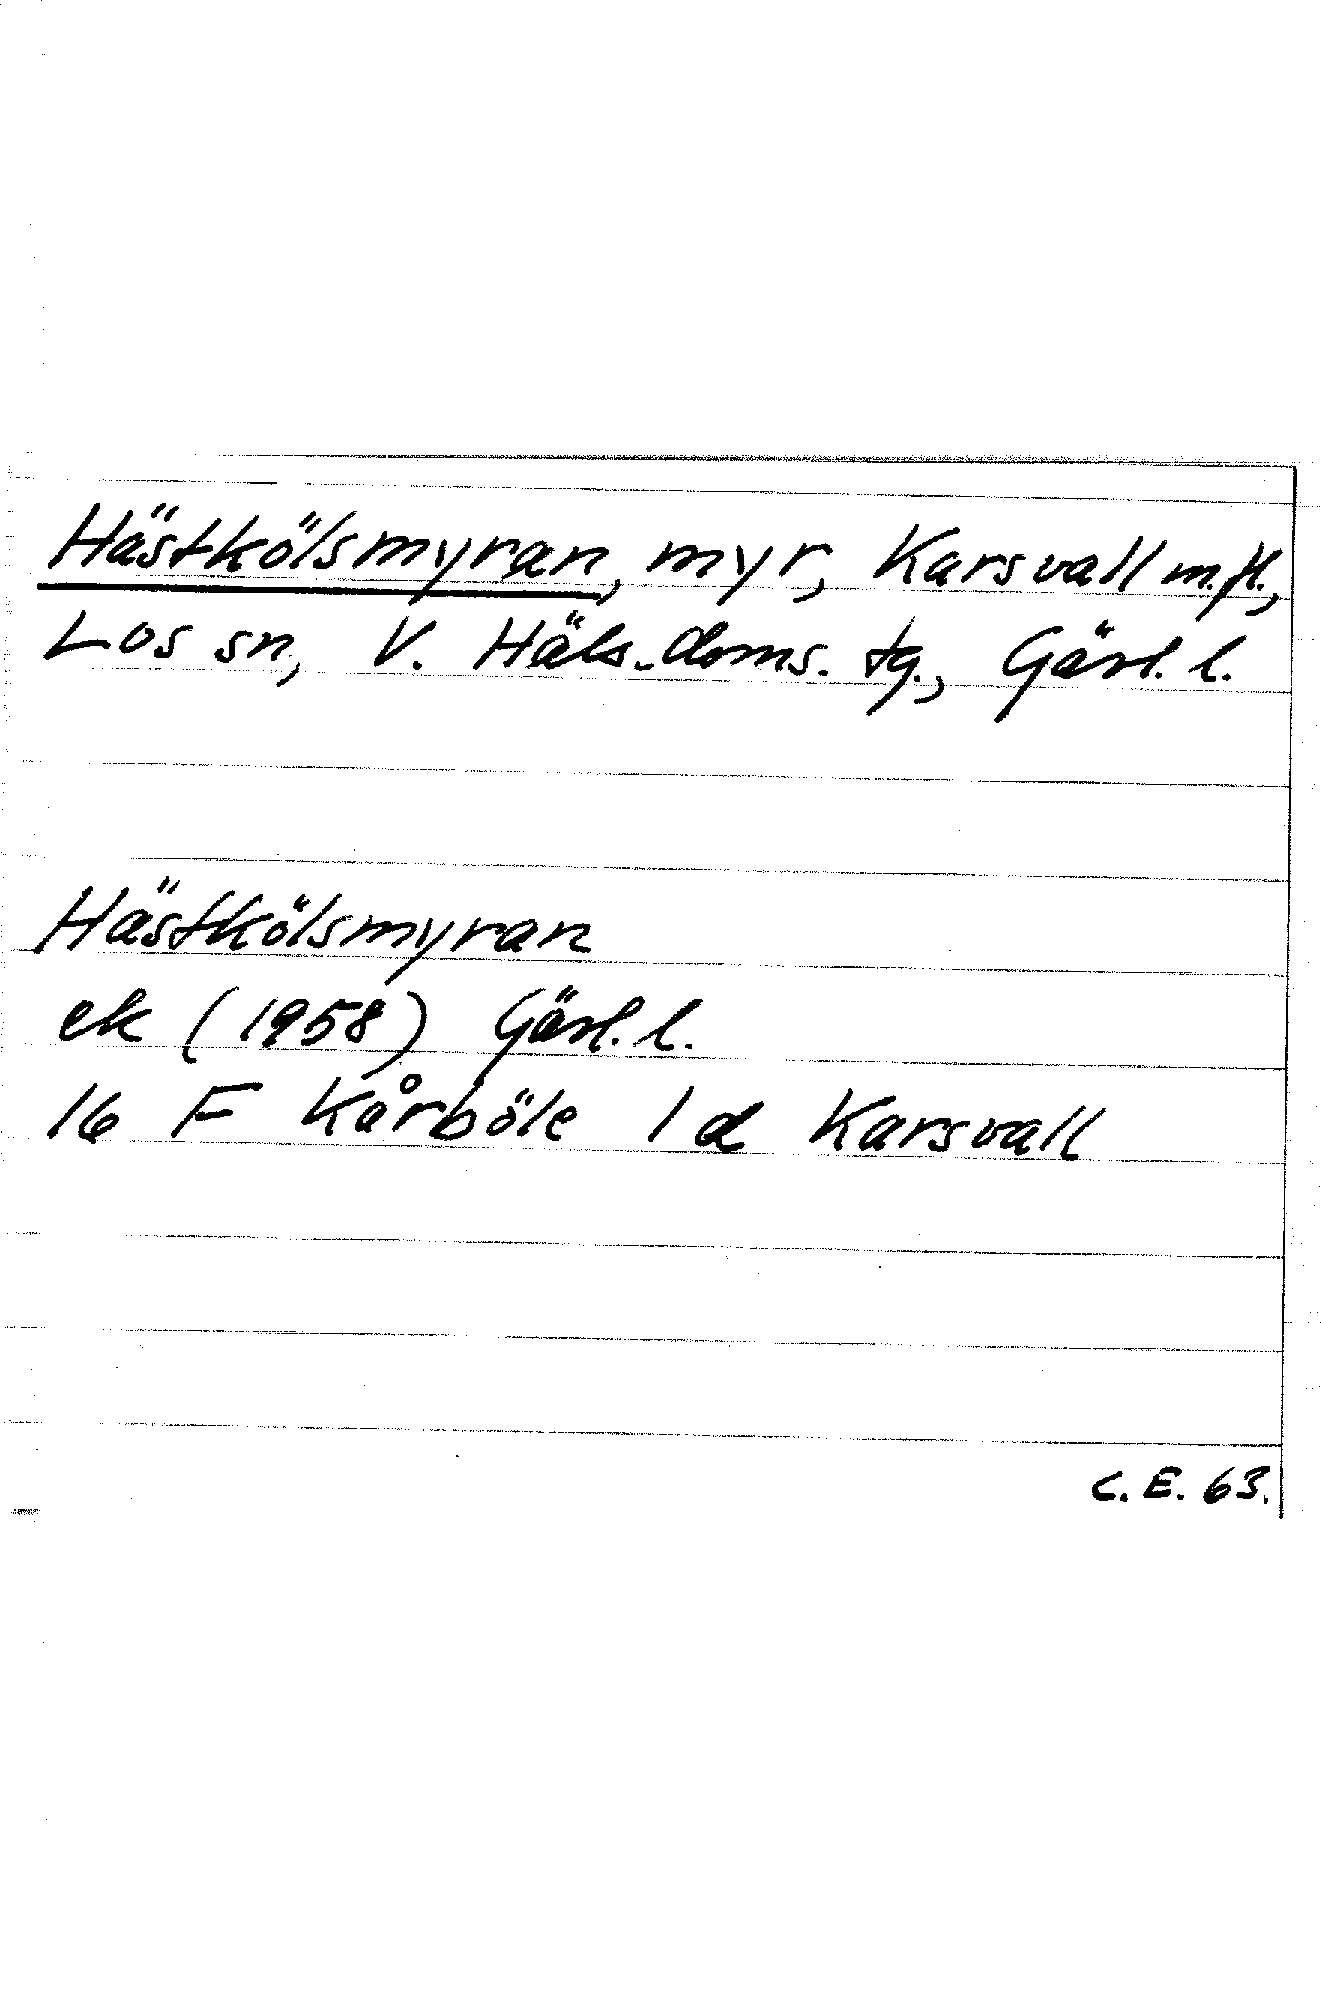 Hästkölsmyran, myr, Karsvall m.fl.,
Los sn, V. Häls. doms. tg., Gävl. l.
Hästkölsmyran
ek (1958) Gävl. l.
16 F Kårböle 1 d Karsvall
C. E. 63.